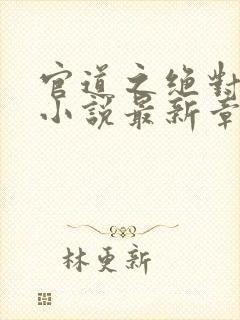 官道之絕對
小說最新章
林更新